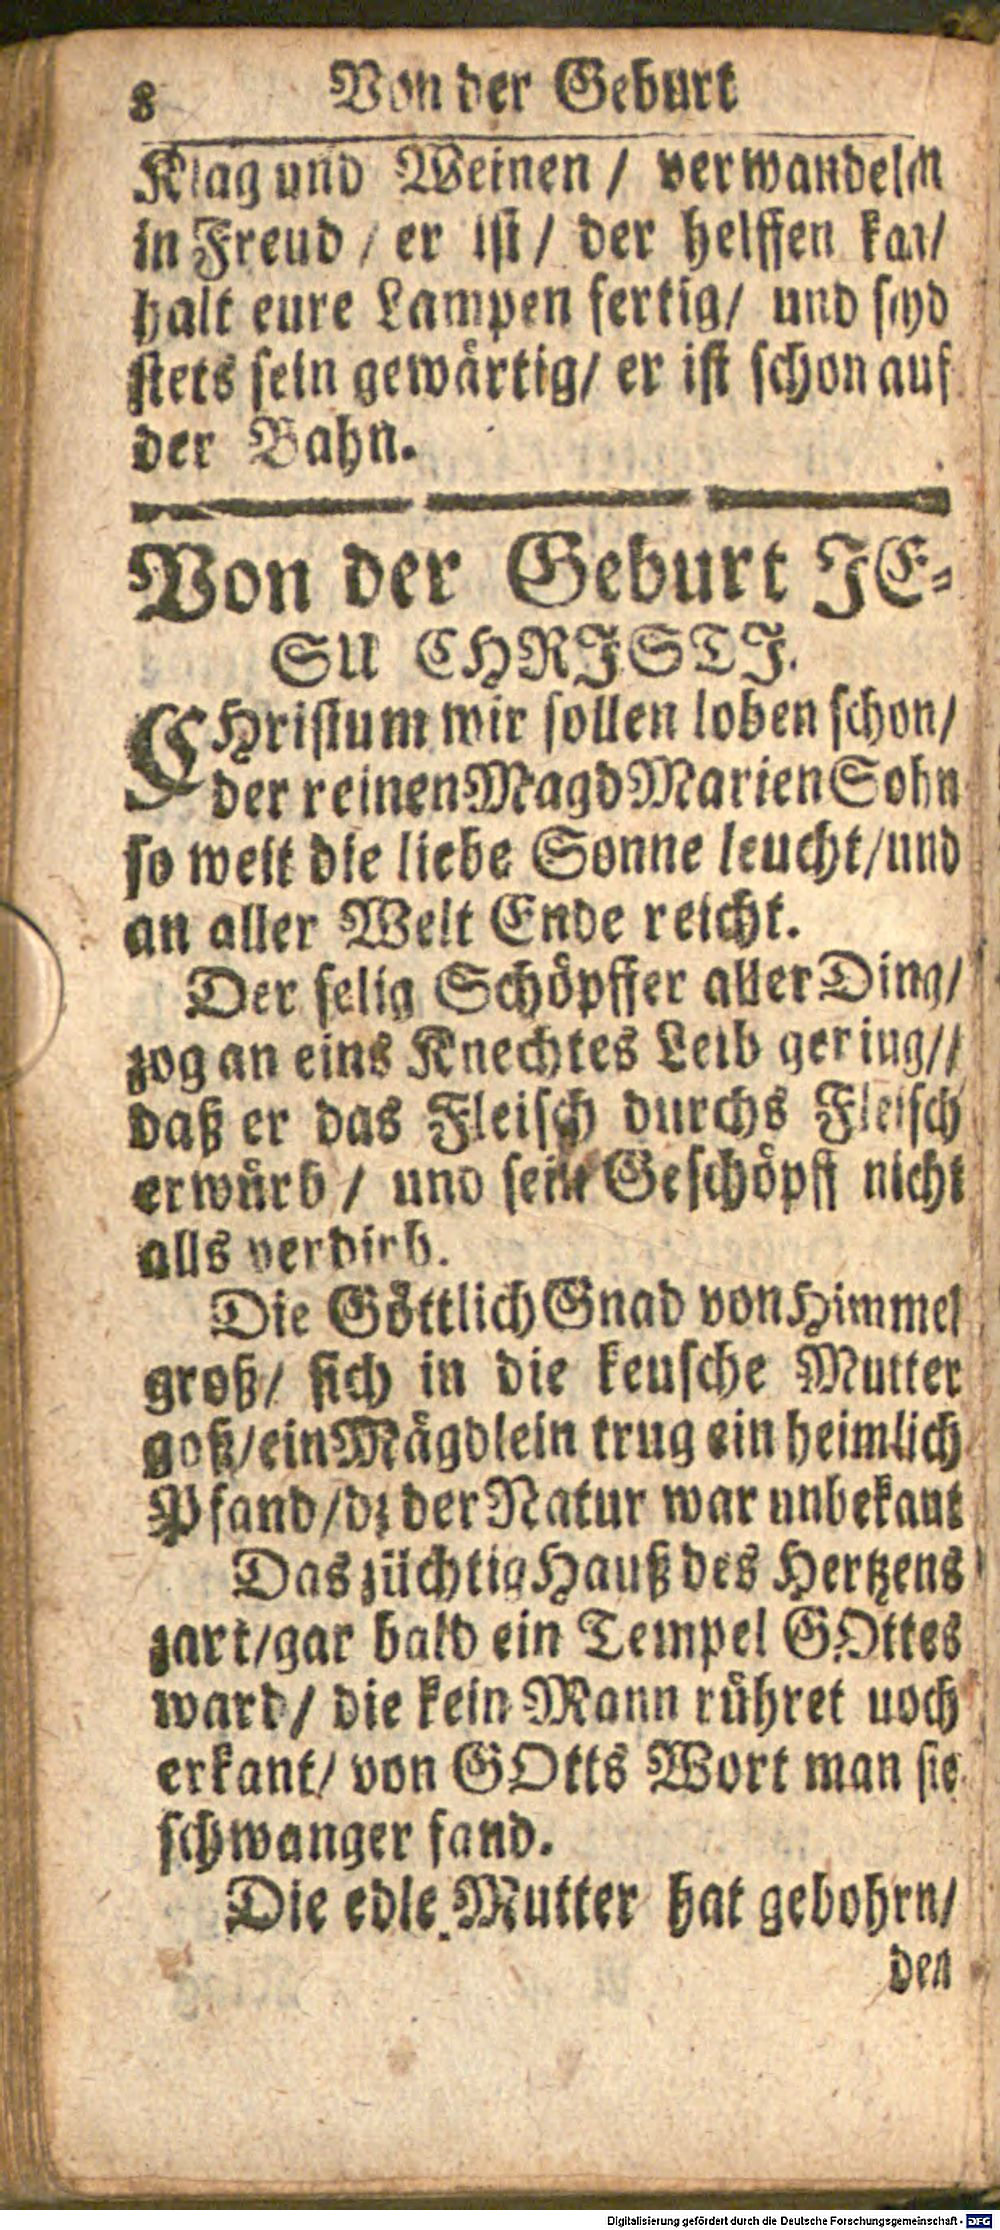 8 Von der Geburt
Klag und Weinen / verwandeln
in Freud / er ist / der helffen kan /
halt eure Lampen fertig / und seyd
stets sein gewärtig / er ist schon auf
der Bahn.
Von der Geburt JE-
SU CHRISTI.
CHristum wir sollen loben schon /
der reinen Magd Marien Sohn
so weit die liebe Sonne leucht / und
an aller Welt Ende reicht.
Der selig Schöpffer aller Ding /
zog an eins Knechtes Leib gering //
daß er das Fleisch durchs Fleisch
erwürb / und sein Geschöpff nicht
alls verdirb.
Die Göttlich Gnad von Himmel
groß / sich in die keusche Mutter
goß / ein Mägdlein trug ein heimlich
Pfand / dz der Natur war unbekant
Das züchtig Hauß des Hertzens
zart / gar bald ein Tempel GOttes
ward / die kein Mann rühret noch
erkant / von GOtts Wort man sie
schwanger fand.
Die edle Mutter hat gebohrn /
den
Digitalisierung gefördert durch die Deutsche Forschungsgemeinschaft - DFG